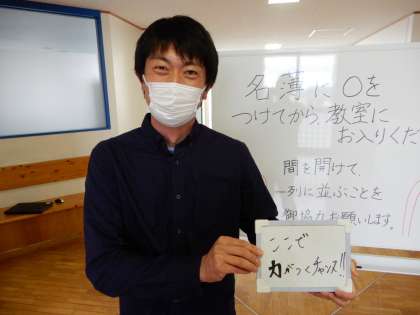 名簿に〇を
つけてから、教室に
お入りくだ
間を開けて、
一列に並ぶことを
御協力お願いします。
ここで
力がつくチャンス!!